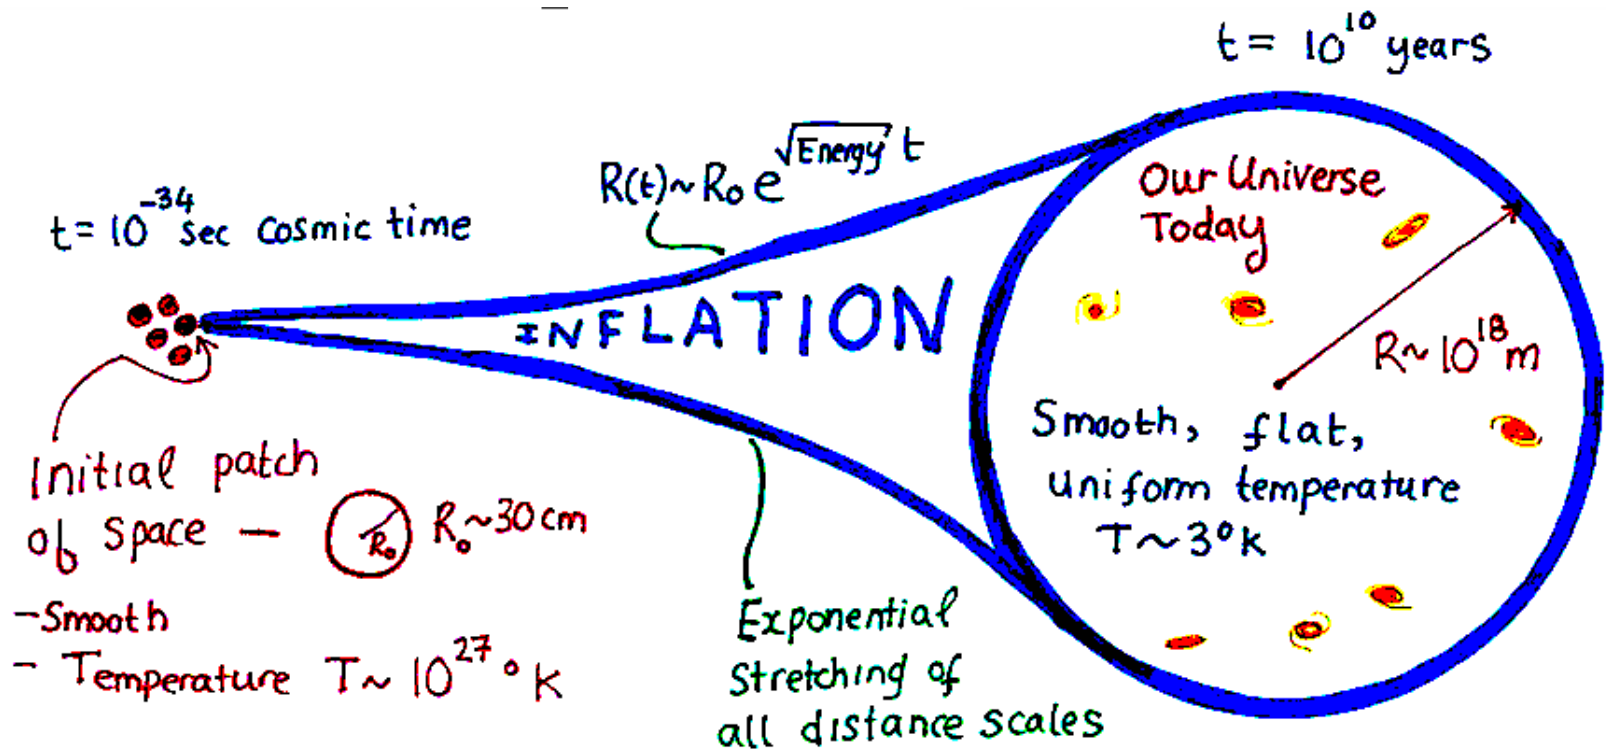 t = 10^10 years
R(t) ~ R₀ e^√Energy t
t = 10^-34 sec cosmic time
Our Universe
Today
INFLATION
R ~ 10^18 m
Smooth, flat,
uniform temperature
T ~ 3°K
Initial patch
of space —
R₀
R₀ ~ 30 cm
- Smooth
- Temperature T ~ 10^27 °K
Exponential
Stretching of
all distance scales